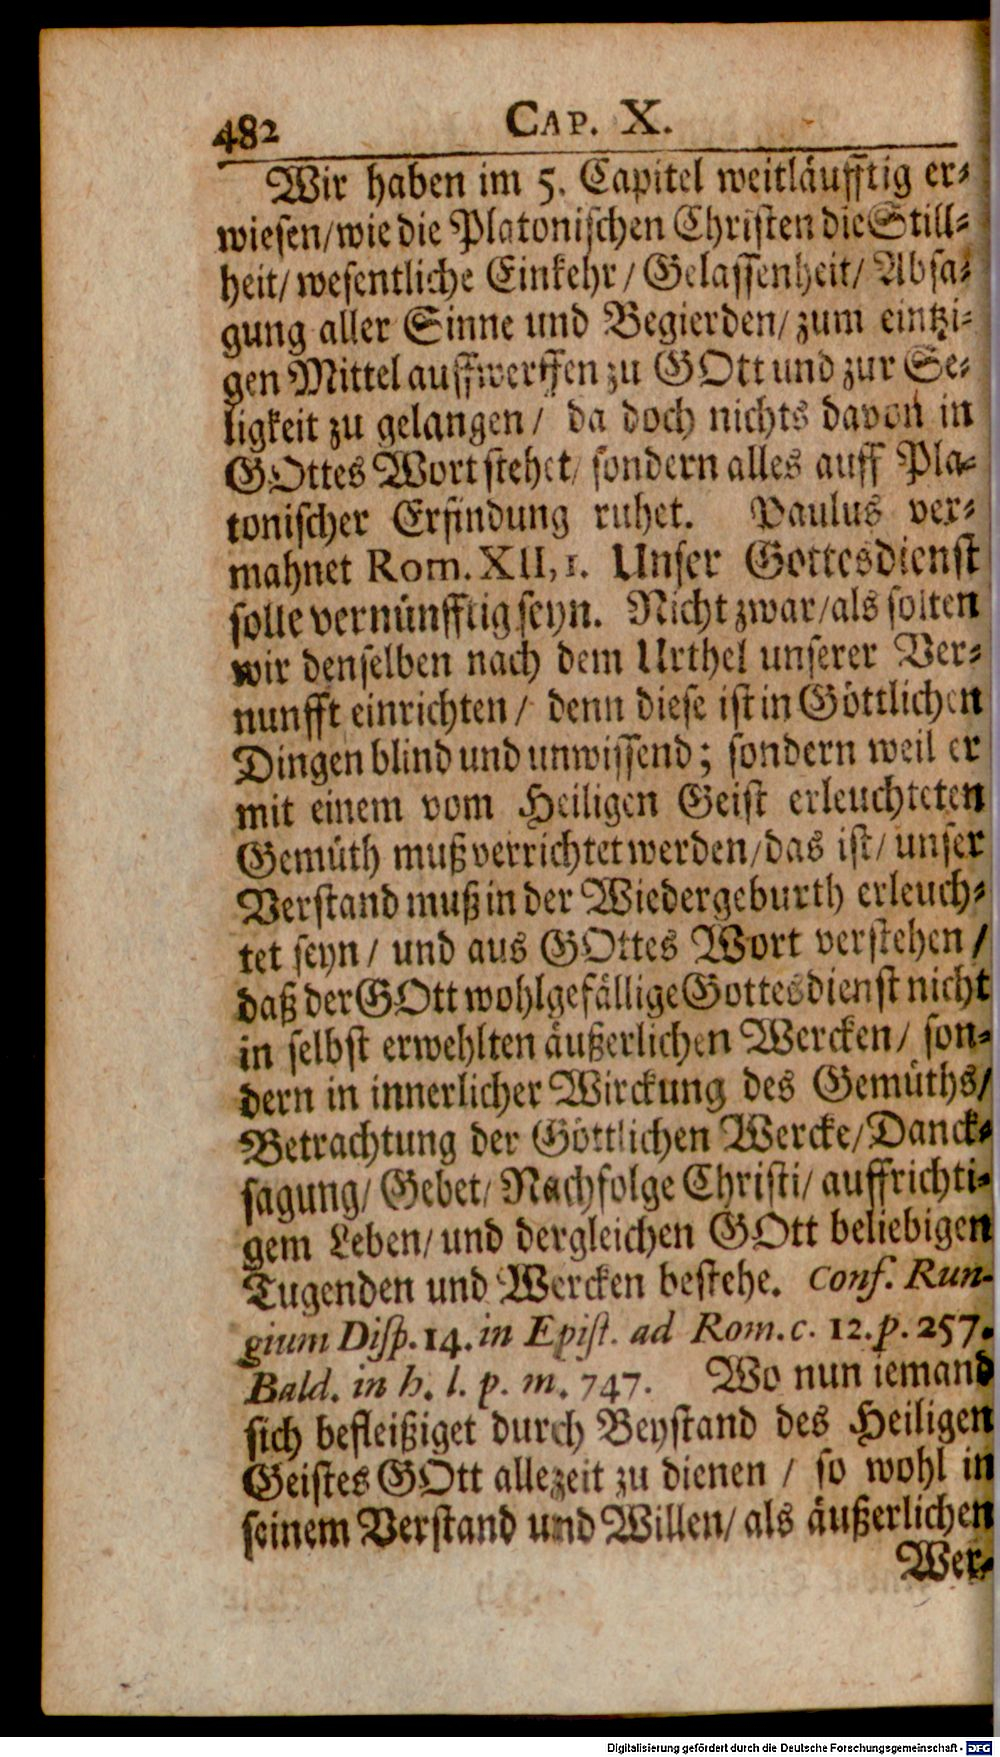 482 CAP. X.
Wir haben im 5. Capitel weitläufftig er-
wiesen/wie die Platonischen Christen die Still-
heit/ wesentliche Einkehr/ Gelassenheit/ Absa-
gung aller Sinne und Begierden/ zum eintzi-
gen Mittel auffwerffen zu GOtt und zur Se-
ligkeit zu gelangen/ da doch nichts davon in
GOttes Wort stehet/ sondern alles auff Pla-
tonischer Erfindung ruhet. Paulus ver-
mahnet Rom. XII, 1. Unser Gottesdienst
solle vernünfftig seyn. Nicht zwar/als solten
wir denselben nach dem Urthel unserer Ver-
nunfft einrichten/ denn diese ist in Göttlichen
Dingen blind und unwissend; sondern weil er
mit einem vom Heiligen Geist erleuchteten
Gemüth muß verrichtet werden/das ist/ unser
Verstand muß in der Wiedergeburth erleuch-
tet seyn/ und aus GOttes Wort verstehen/
daß der GOtt wohlgefällige Gottesdienst nicht
in selbst erwehlten äußerlichen Wercken/ son-
dern in innerlicher Wirckung des Gemüths/
Betrachtung der Göttlichen Wercke/Danck-
sagung/ Gebet/ Nachfolge Christi/ auffrichti-
gem Leben/ und dergleichen GOtt beliebigen
Tugenden und Wercken bestehe. Conf. Run-
gium Disp. 14. in Epist. ad Rom. c. 12. p. 257.
Bald. in h. l. p. m. 747. Wo nun iemand
sich befleißiget durch Beystand des Heiligen
Geistes GOtt allezeit zu dienen / so wohl in
seinem Verstand und Willen/ als äußerlichen
Wer-
Digitalisierung gefördert durch die Deutsche Forschungsgemeinschaft - DFG